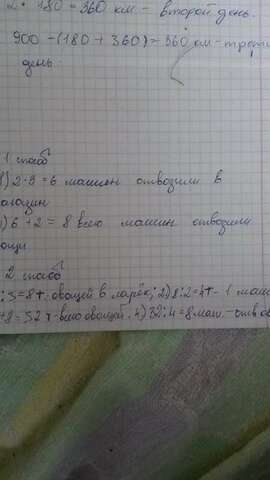 2 · 180 = 360 км - второй день.
900 - (180 + 360) = 360 км - трет
день.
1 способ
1) 2 · 3 = 6 машин отвозили в
агазин
) 6 + 2 = 8 всего машин отвозили
ощи
2 способ
: 3 = 8 т. овощей в ларёк; 2) 8 : 2 = 4 т - 1 маши
+ 8 = 32 т - всего овощей. 4) 32 : 4 = 8 маш. - отв ов